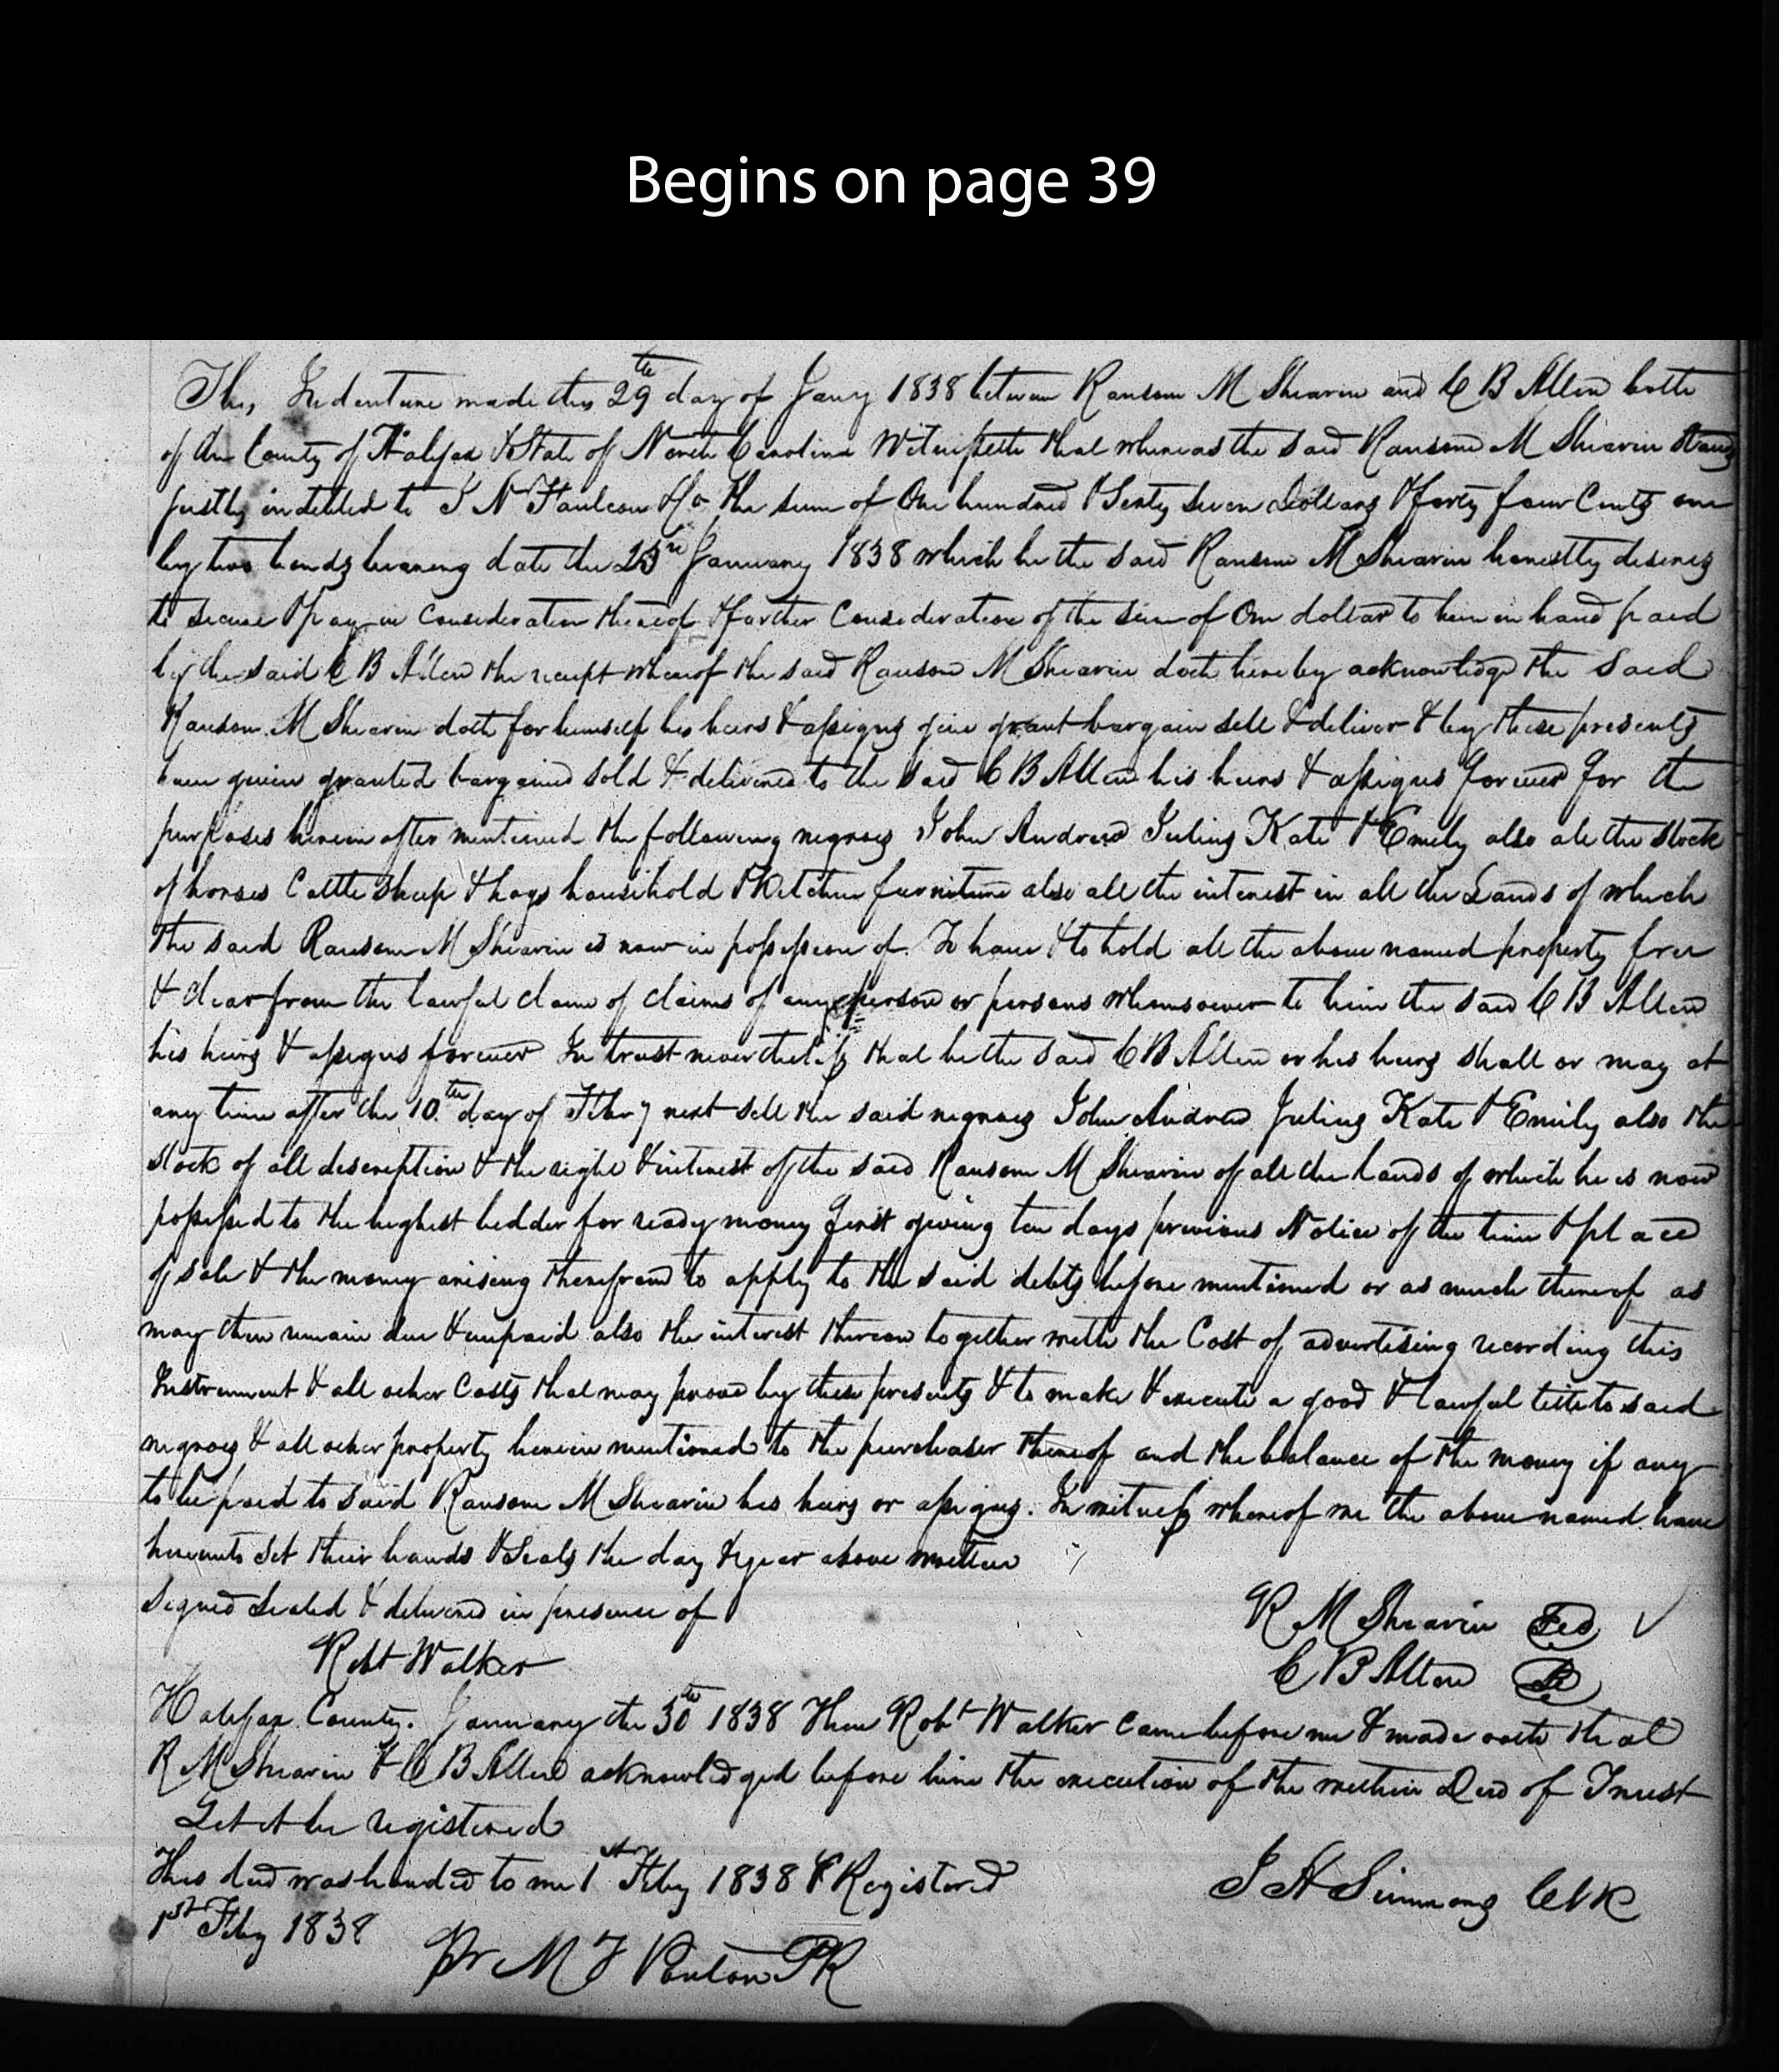 Begins on page 39
This Indenture made this 29th day of Jany 1838 between Ransom M Shearin and C B Allen both
of the County of Halifax & State of North Carolina Witnesseth that whereas the said Ransom M Shearin stands
justly indebted to J N Faulcon & Co the sum of One hundred & Sixty Seven Dollars & forty four Cents due
by two bonds bearing date the 23rd January 1838 which he the said Ransom M Shearin honestly desires
to secure & pay in Consideration thereof & further Consideration of the sum of One dollar to him in hand paid
by the said C B Allen the receipt whereof the said Ransom M Shearin doth hereby acknowledge the said
Ransom M Shearin doth for himself his heirs & assigns give grant bargain sell & deliver & by these presents
have given granted bargained sold & delivered to the said C B Allen his heirs & assigns forever for the
purposes herein after mentioned the following negroes John Andrew Julius Kate & Emily also all the stock
of horses Cattle Sheep & hogs household & Kitchen furniture also all the interest in all the Lands of which
the said Ransom M Shearin is now in possession of. To have & to hold all the above named property free
& clear from the lawful claim of claims of any person or persons whomsoever to him the said C B Allen
his heirs & assigns forever In trust nevertheless that he the said C B Allen or his heirs shall or may at
any time after the 10th day of Febry next sell the said negroes John Andrew Julius Kate & Emily also the
stock of all description & the right & interest of the said Ransom M Shearin of all the lands of which he is now
possessed to the highest bidder for ready money first giving ten days previous Notice of the time & place
of sale & the money arising therefrom to apply to the said debts before mentioned or as much thereof as
may then remain due & unpaid also the interest thereon together with the Cost of advertising recording this
Instrument & all other Costs that may prove by these presents & to make & execute a good & lawful title to said
negroes & all other property herein mentioned to the purchaser thereof and the balance of the money if any
to be paid to said Ransom M Shearin his heirs or assigns. In witness whereof we the above named have
hereunto set their hands & Seals the day & year above written
Signed Sealed & delivered in presence of
R M Shearin Seal
Robt Walker
C B Allen
Halifax County. January the 30th 1838 Then Robt Walker Came before me & made oath that
R M Shearin & C B Allen acknowledged before him the execution of the within Deed of Trust
Let it be registered
This deed was handed to me 1st Feby 1838 & Registered
J H Simmons Clk
1st Feby 1838
Pr M F Ponton PR